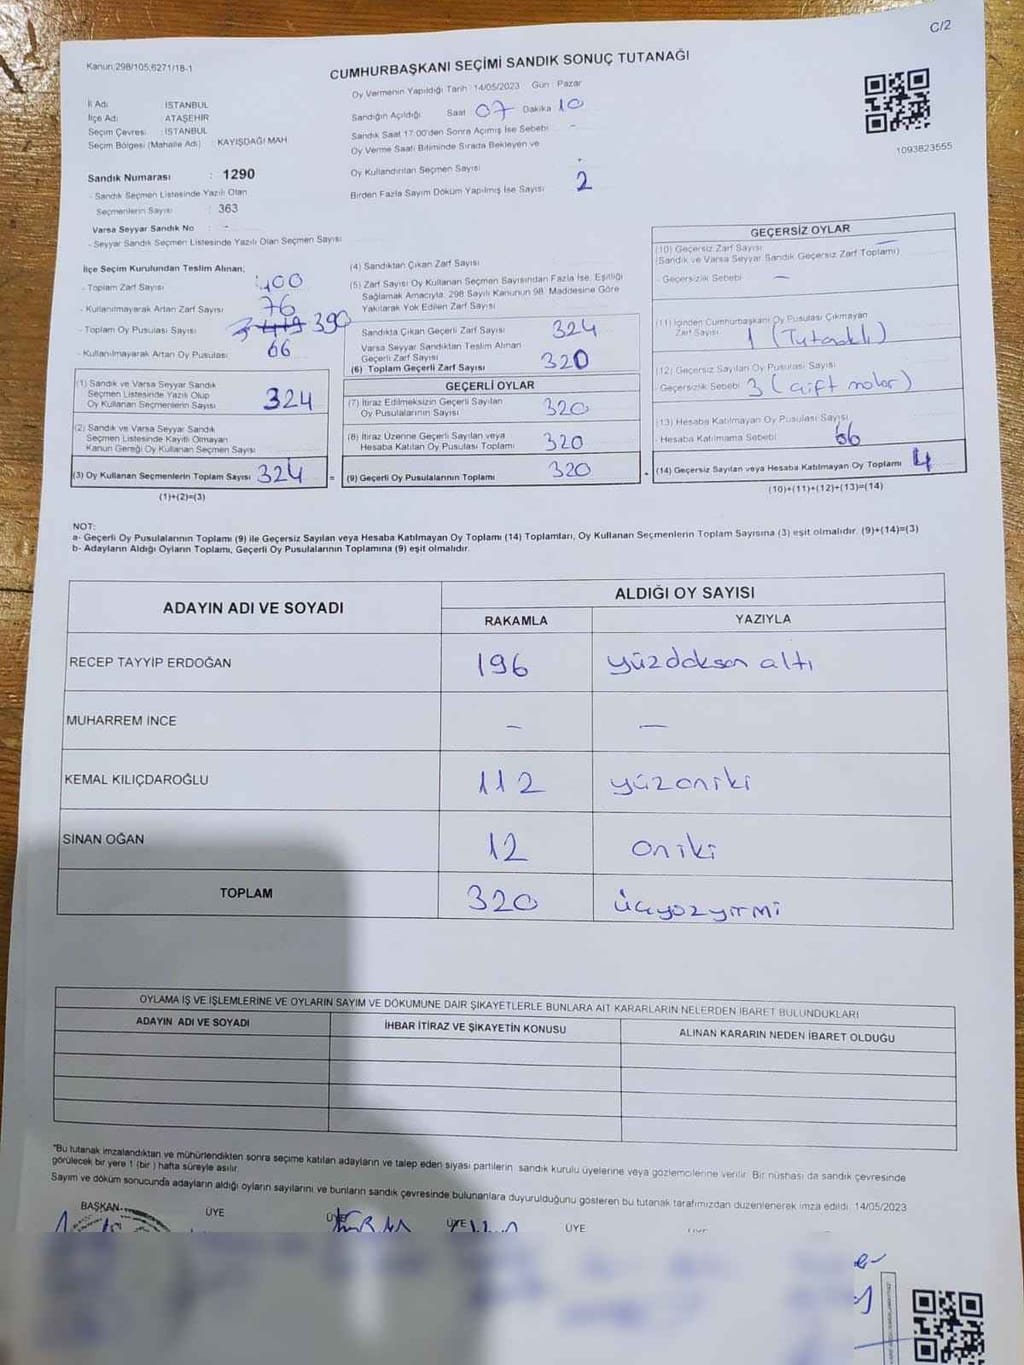 C/2
Kanun:298/105,6271/18-1
CUMHURBAŞKANI SEÇİMİ SANDIK SONUÇ TUTANAĞI
İl Adı : İSTANBUL
İlçe Adı : ATAŞEHİR
Seçim Çevresi : İSTANBUL
Seçim Bölgesi (Mahalle Adı) : KAYIŞDAĞI MAH
Oy Vermenin Yapıldığı Tarih : 14/05/2023 Gün : Pazar
Sandığın Açıldığı Saat 07 Dakika 10
Sandık Saat 17:00'den Sonra Açımış İse Sebebi -
Oy Verme Saati Bitiminde Sırada Bekleyen ve
Oy Kullandırılan Seçmen Sayısı
Birden Fazla Sayım Döküm Yapılmış İse Sayısı 2
1093823555
Sandık Numarası : 1290
- Sandık Seçmen Listesinde Yazılı Olan
Seçmenlerin Sayısı : 363
Varsa Seyyar Sandık No : -
- Seyyar Sandık Seçmen Listesinde Yazılı Olan Seçmen Sayısı
İlçe Seçim Kurulundan Teslim Alınan;
- Toplam Zarf Sayısı 400
- Kullanılmayarak Artan Zarf Sayısı 76
- Toplam Oy Pusulası Sayısı 390
- Kullanılmayarak Artan Oy Pusulası 66
(1) Sandık ve Varsa Seyyar Sandık
Seçmen Listesinde Yazılı Olup
Oy Kullanan Seçmenlerin Sayısı 324
(2) Sandık ve Varsa Seyyar Sandık
Seçmen Listesinde Kayıtlı Olmayan
Kanun Gereği Oy Kullanan Seçmen Sayısı
(3) Oy Kullanan Seçmenlerin Toplam Sayısı 324
(1)+(2)=(3)
(4) Sandıktan Çıkan Zarf Sayısı
(5) Zarf Sayısı Oy Kullanan Seçmen Sayısından Fazla İse, Eşitliği
Sağlamak Amacıyla; 298 Sayılı Kanunun 98. Maddesine Göre
Yakılarak Yok Edilen Zarf Sayısı
Sandıkta Çıkan Geçerli Zarf Sayısı 324
Varsa Seyyar Sandıktan Teslim Alınan
Geçerli Zarf Sayısı
(6) Toplam Geçerli Zarf Sayısı 320
GEÇERLİ OYLAR
(7) İtiraz Edilmeksizin Geçerli Sayılan
Oy Pusulalarının Sayısı 320
(8) İtiraz Üzerine Geçerli Sayılan veya
Hesaba Katılan Oy Pusulası Toplamı 320
= (9) Geçerli Oy Pusulalarının Toplamı 320
GEÇERSİZ OYLAR
(10) Geçersiz Zarf Sayısı
(Sandık ve Varsa Seyyar Sandık Geçersiz Zarf Toplamı)
- Geçersizlik Sebebi : -
(11) İçinden Cumhurbaşkanı Oy Pusulası Çıkmayan
Zarf Sayısı 1 (Tutanaklı)
(12) Geçersiz Sayılan Oy Pusulası Sayısı
- Geçersizlik Sebebi 3 (çift mühür)
(13) Hesaba Katılmayan Oy Pusulası Sayısı
- Hesaba Katılmama Sebebi 66
+ (14) Geçersiz Sayılan veya Hesaba Katılmayan Oy Toplamı 4
(10)+(11)+(12)+(13)=(14)
NOT:
a- Geçerli Oy Pusulalarının Toplamı (9) ile Geçersiz Sayılan veya Hesaba Katılmayan Oy Toplamı (14) Toplamları, Oy Kullanan Seçmenlerin Toplam Sayısına (3) eşit olmalıdır. (9)+(14)=(3)
b- Adayların Aldığı Oyların Toplamı, Geçerli Oy Pusulalarının Toplamına (9) eşit olmalıdır.
ADAYIN ADI VE SOYADI ALDIĞI OY SAYISI
RAKAMLA YAZIYLA
RECEP TAYYİP ERDOĞAN 196 yüzdoksan altı
MUHARREM İNCE - -
KEMAL KILIÇDAROĞLU 112 yüzoniki
SİNAN OĞAN 12 oniki
TOPLAM 320 üçyüzyirmi
OYLAMA İŞ VE İŞLEMLERİNE VE OYLARIN SAYIM VE DÖKÜMÜNE DAİR ŞİKAYETLERLE BUNLARA AİT KARARLARIN NELERDEN İBARET BULUNDUKLARI
ADAYIN ADI VE SOYADI İHBAR İTİRAZ VE ŞİKAYETİN KONUSU ALINAN KARARIN NEDEN İBARET OLDUĞU
*Bu tutanak imzalandıktan ve mühürlendikten sonra seçime katılan adayların ve talep eden siyasi partilerin sandık kurulu üyelerine veya gözlemcilerine verilir. Bir nüshası da sandık çevresinde
görülecek bir yere 1 (bir ) hafta süreyle asılır.
Sayım ve döküm sonucunda adayların aldığı oyların sayılarını ve bunların sandık çevresinde bulunanlara duyurulduğunu gösteren bu tutanak tarafımızdan düzenlenerek imza edildi. 14/05/2023
BAŞKAN ÜYE ÜYE ÜYE ÜYE